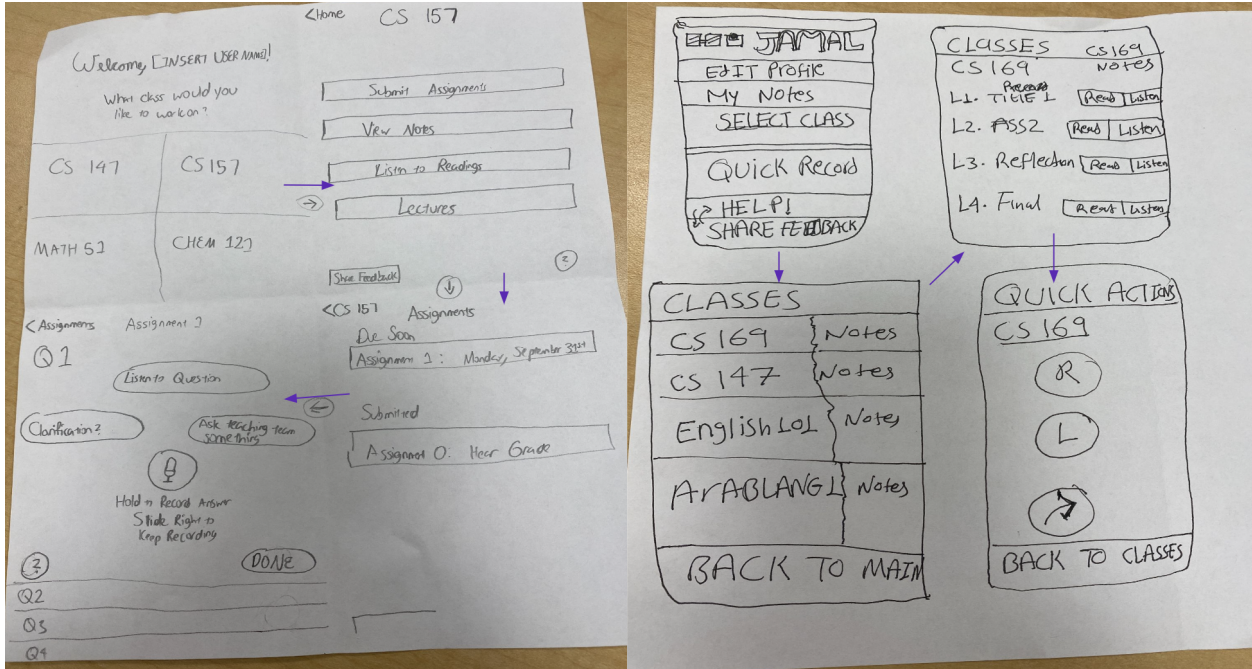 Welcome, [INSERT USER NAME]!
What class would you
like to work on?
CS 147
CS 157
MATH 51
CHEM 123
<Home
CS 157
Submit Assignments
View Notes
Listen to Readings
Lectures
Share Feedback
?
<CS 157
Assignments
Due Soon
Assignment 1: Monday, September 31st
Submitted
Assignment 0: Hear Grade
<Assignments
Assignment 1
Q1
Listen to Question
Clarification?
Ask teaching team
something
Hold to Record Answer
Slide Right to
Keep Recording
?
DONE
Q2
Q3
Q4
JAMAL
EdIT Profile
My Notes
SELECT CLASS
QUICK Record
HELP!
SHARE FEEDBACK
CLASSES
CS 169
Notes
CS 147
Notes
English 101
Notes
ArABLANG1
Notes
BACK TO MAIN
CLASSES
CS169
CS 169
Notes
L1. TITLE 1
Read
Listen
L2. ASS2
Read
Listen
L3. Reflection
Read
Listen
L4. Final
Read
Listen
QUICK ACTIONS
CS 169
R
L
BACK TO CLASSES